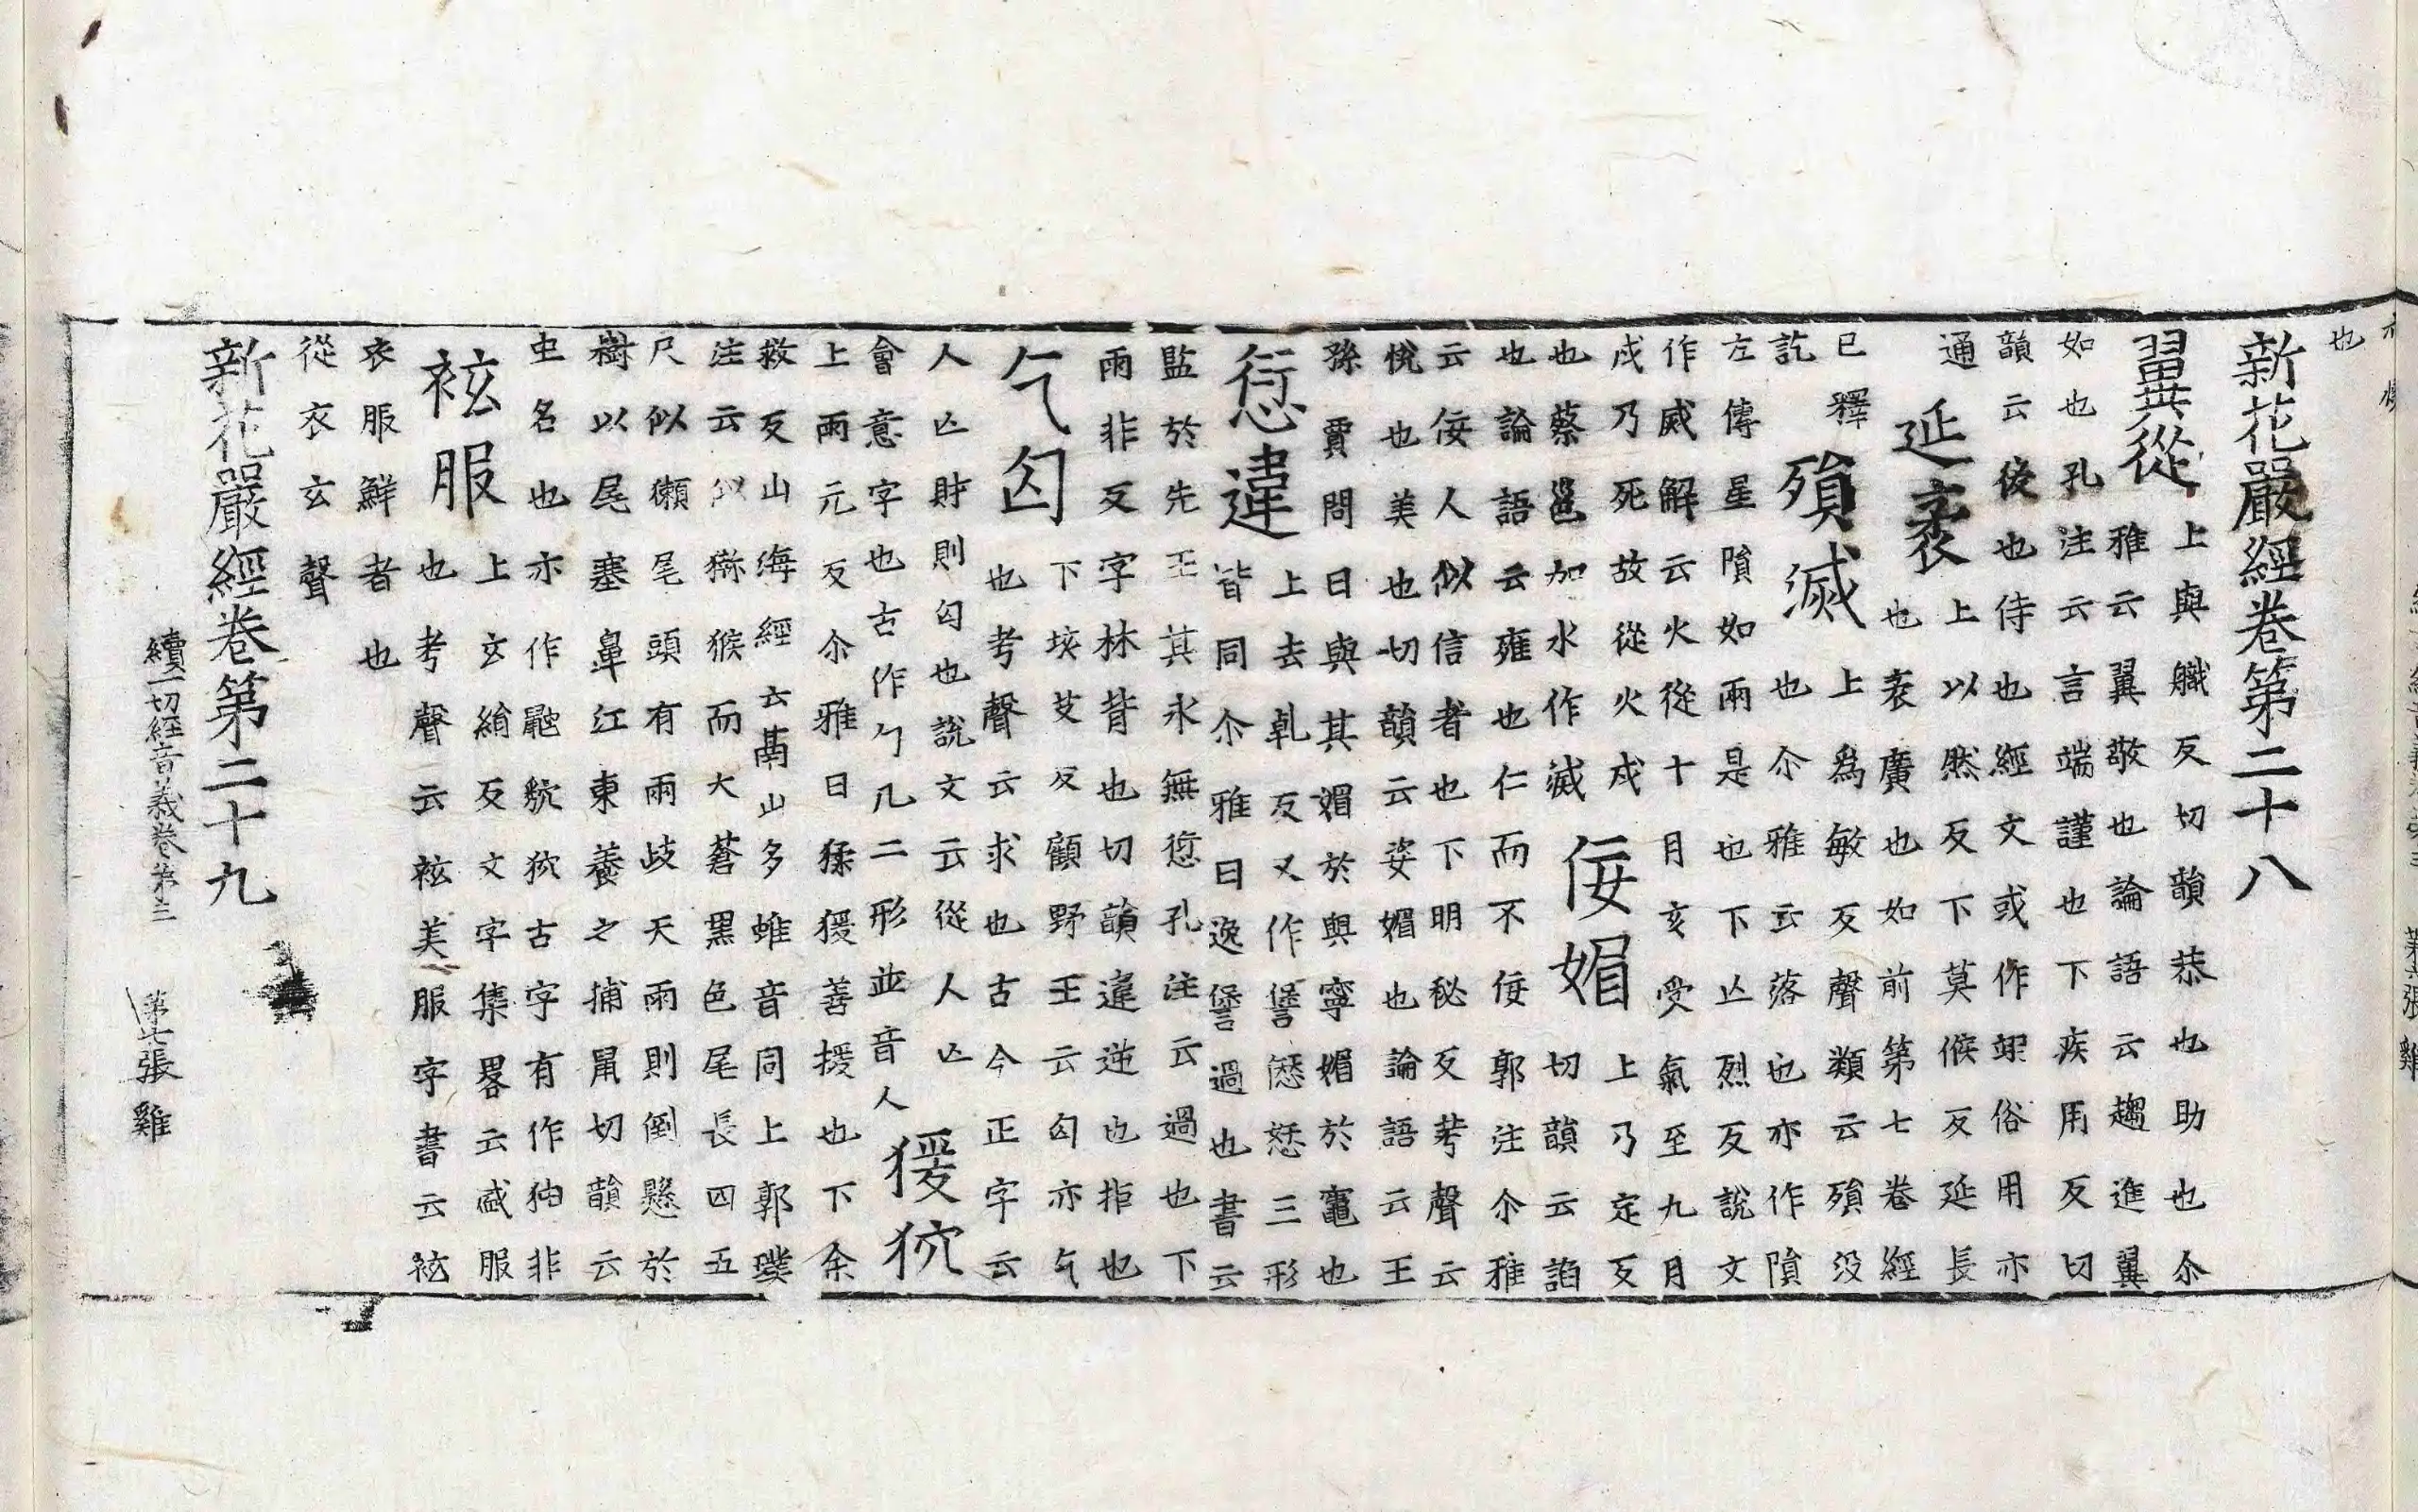 也
新花嚴經卷第二十八
翼從
上與職反切韻恭也助也尒
雅云翼敬也論語云趨進翼
如也孔注云言端謹也下疾用反切
韻云後也侍也經文或作𦐂俗用亦
通
延袤
上以然反下莫候反延長
也袤廣也如前第七卷經
已釋
訖
殞滅
上為敏反聲類云殞没
也尒雅云落也亦作隕
左傳星隕如雨是也下亡烈反說文
作烕解云火從十月亥受氣至九月
戌乃死故從火戌
也蔡邕加水作滅
佞媚
上乃定反
切韻云諂
也論語云雍也仁而不佞郭注尒雅
云佞人似信者也下明秘反考聲云
悅也美也切韻云姿媚也論語云王
孫賈問曰與其媚於奧寧媚於竈也
愆違
上去乹反又作諐𠍴㥶三形
皆同尒雅曰逸諐過也書云
監於先王其永無愆孔注云過也下
雨非反字林背也切韻違逆也拒也
乞匃
下垓艾反顧野王云匃亦乞
也考聲云求也古今正字云
人亡財則匃也說文云從人亡
會意字也古作勹几二形並音人
猨狖
上雨元反尒雅曰猱猨善援也下余
救反山海經云鬲山多蜼音同上郭璞
注云似獼猴而大蒼黑色尾長四五
尺似獺尾頭有兩歧天雨則倒懸於
樹以尾塞鼻江東養之捕鼠切韻云
虫名也亦作𪕪貁狖古字有作㹨非
袨服
上玄絹反文字集畧云盛服
也考聲云袨美服字書云袨
衣服鮮者也
從衣玄聲
新花嚴經卷第二十九
續一切經音義卷第三 第七張 雞